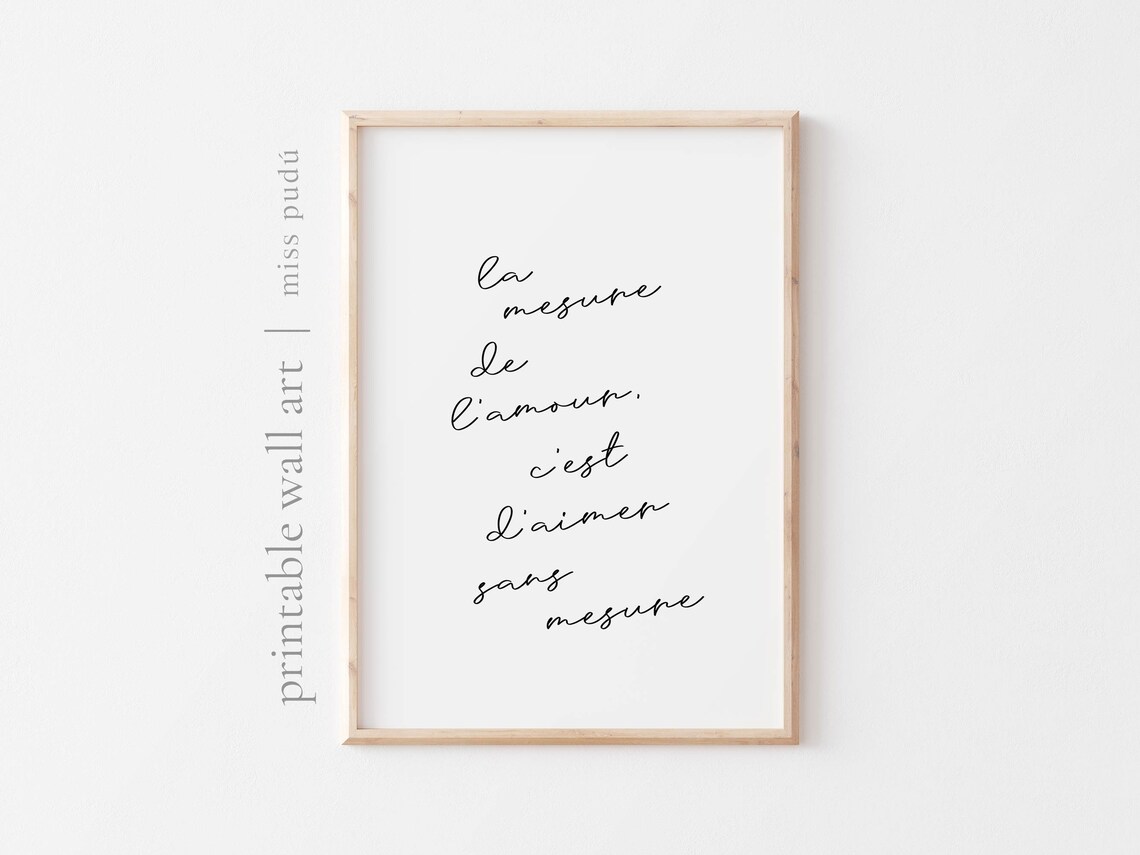 printable wall art | miss pudú
la
mesure
de
l'amour,
c'est
d'aimer
sans
mesure